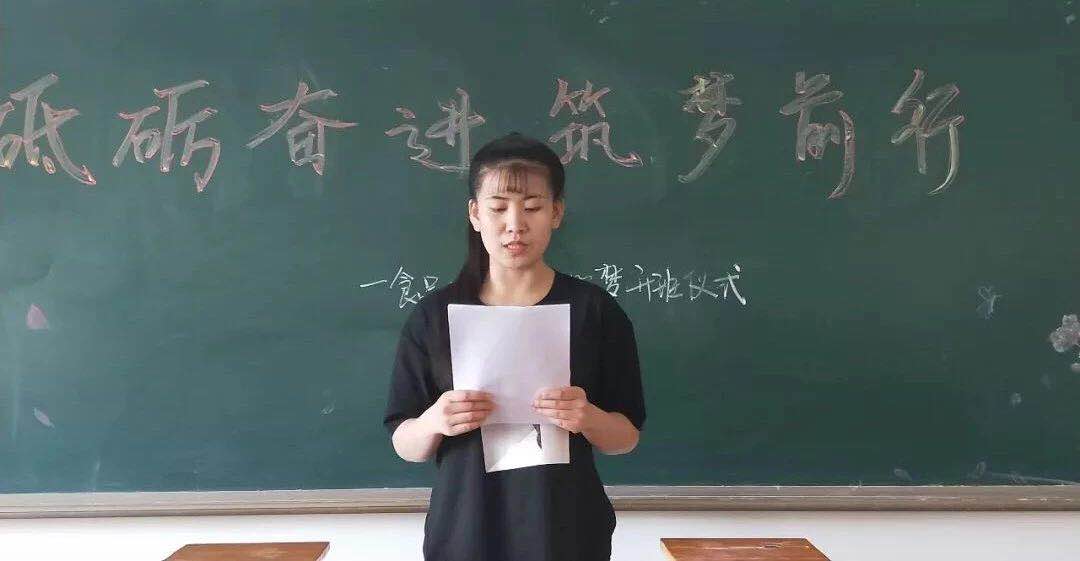 砥砺奋进 筑梦前行
一食品 梦开班仪式